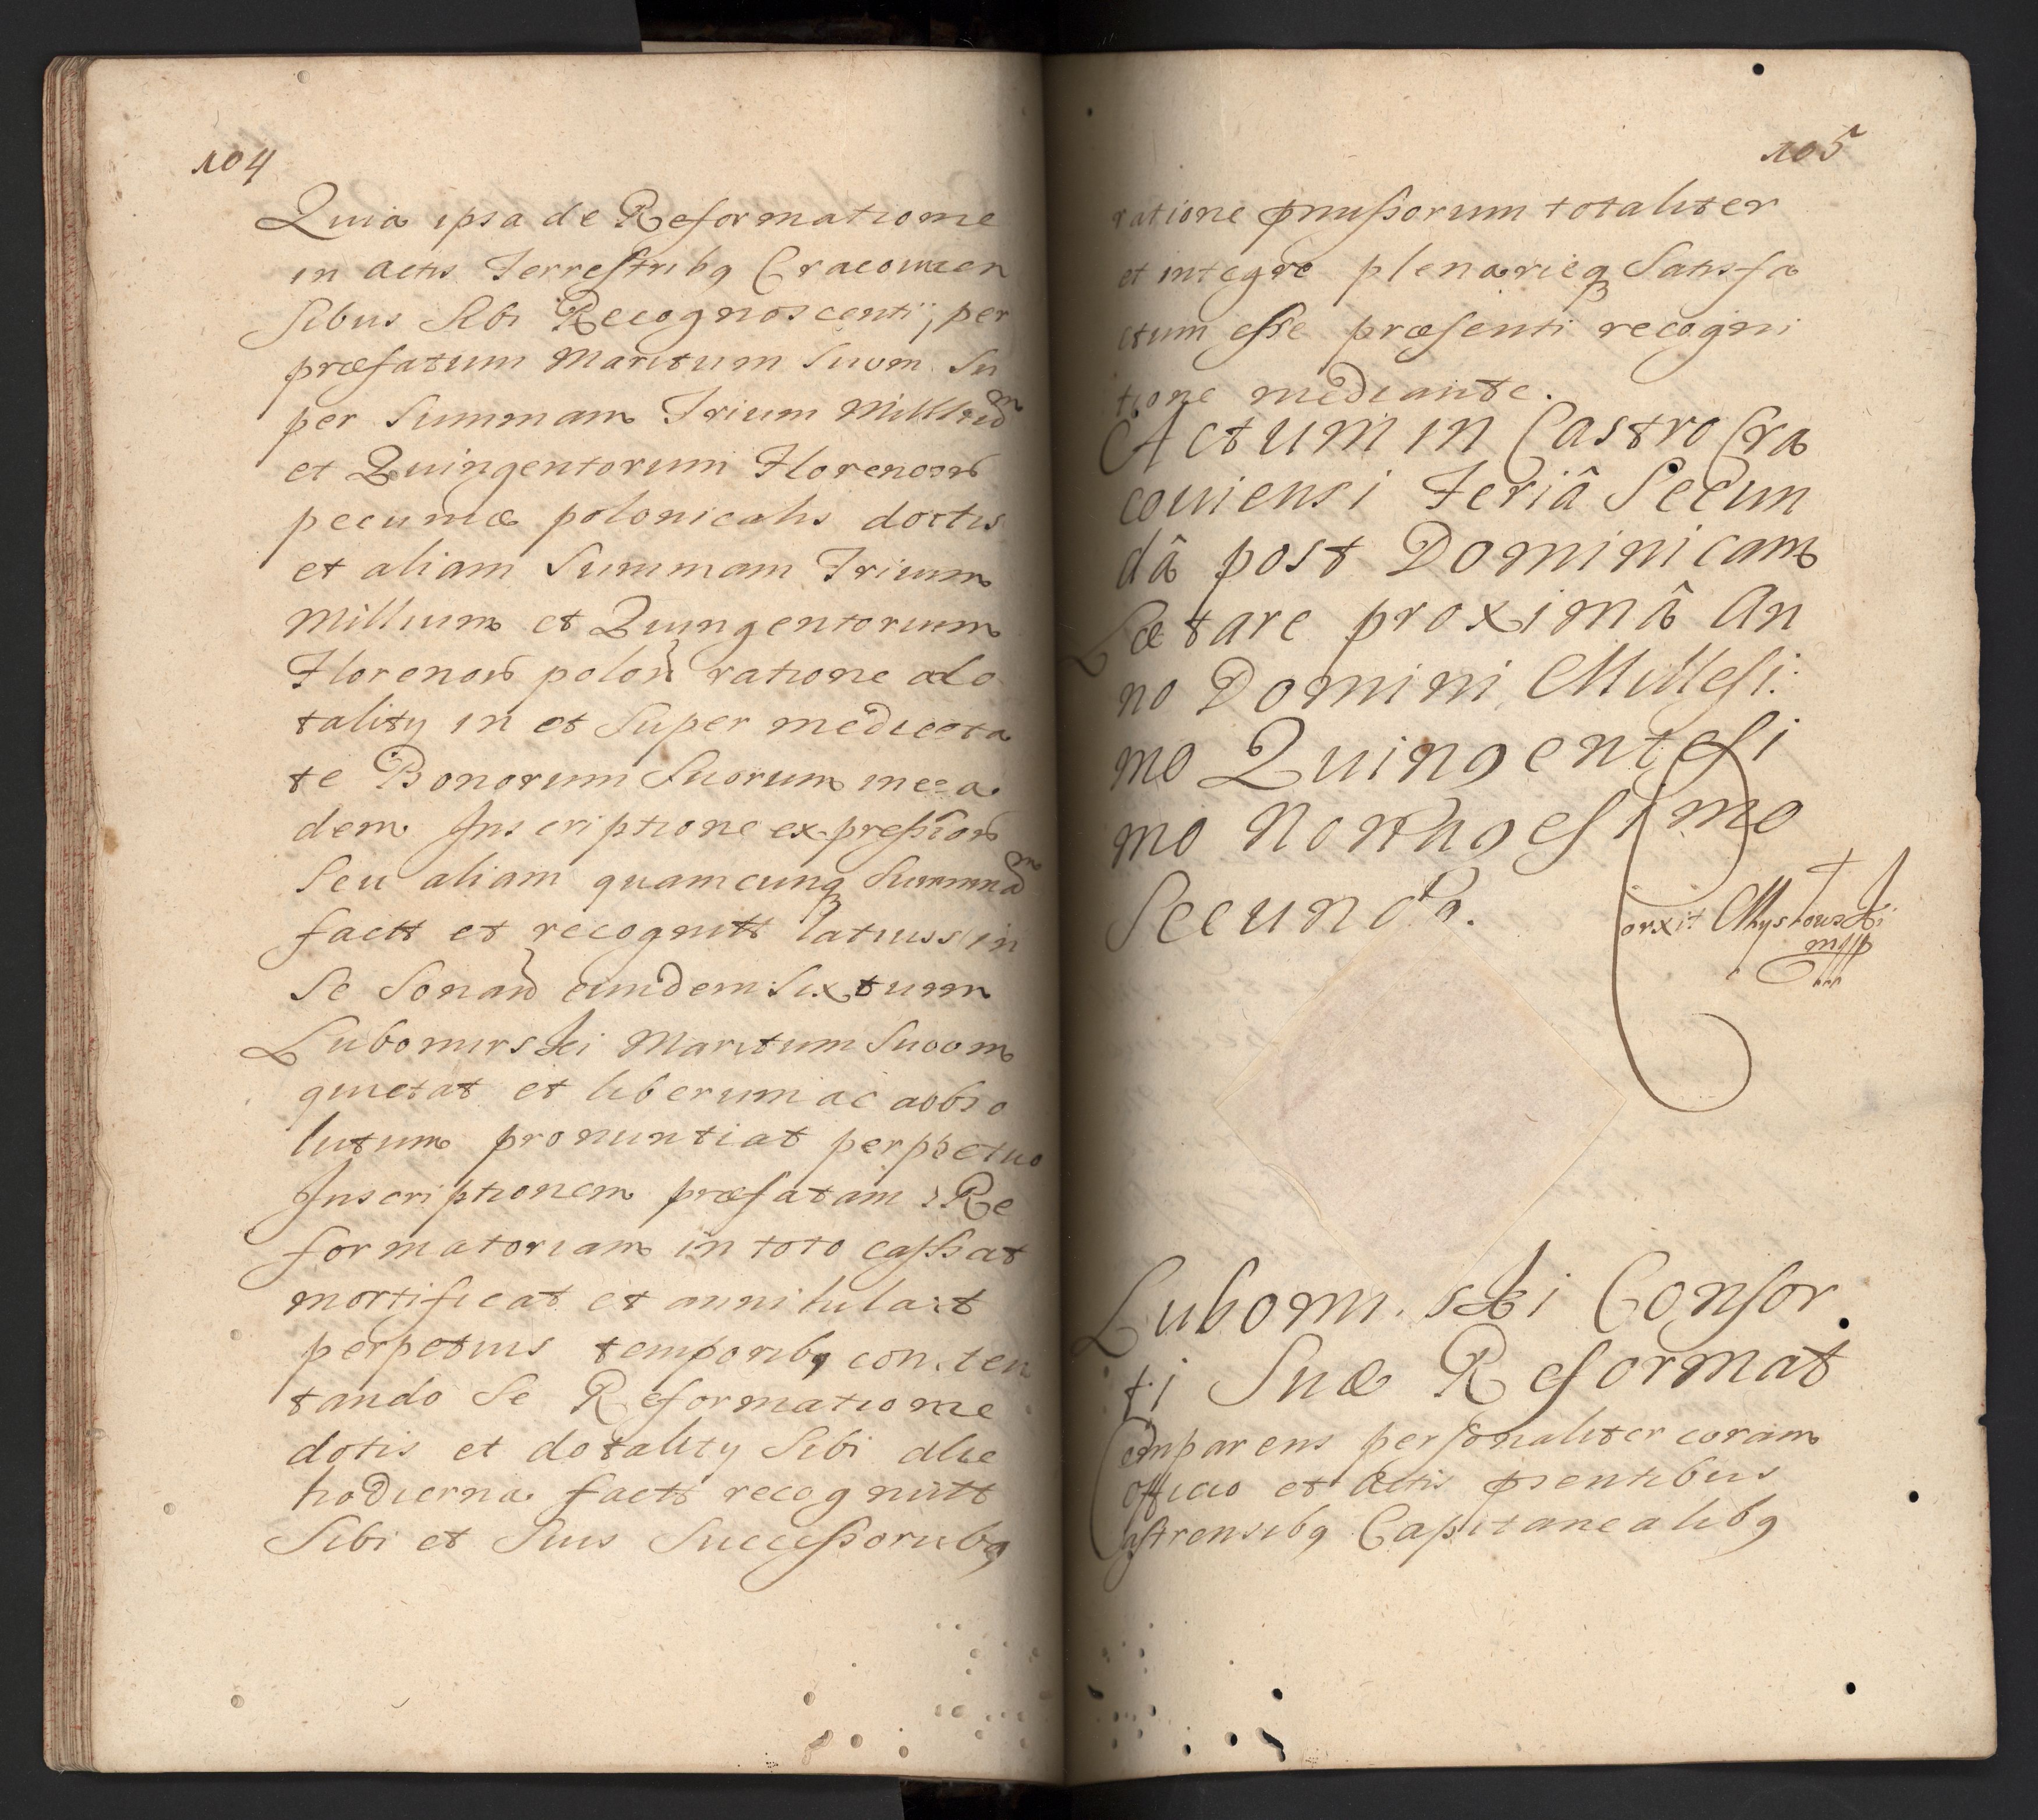 104
Quia ipsa de Reformatione
in actis Terrestribq Cracovien
sibus sibi Recognoscenti, per
præfatum Maritum Suom Su
per Summam Trium Millium
et Quingentorum Florenorũ
pecuniæ polonicalis dotis
et aliam Summam Trium
Millium et Quingentorum
Florenorũ polon ratione do
tality in et Super medieta
te Bonorum Suorum in ea
dem Inscriptione expressorũ
Seu aliam quamcunq Summam
factt et recognitt latiuss in
Se Sonan eundem Sixtum
Lubomirski Maritum Suoom
quietat et liberum ac abso
lutum pronuntiat perpetuo
Inscriptionem præfatam Re
formatoriam in toto cassat
mortificat et annihilat
perpetuis temporibq con ten
tando Se Reformatione
dotis et dotality Sibi die
hodierna factt recognitt
Sibi et Suis Successoribq
105
ratione pmissorum totaliter
et integre plenarieq Satisfa
ctum esse præsenti recogni
tione mediante.
Actum in Castro Cra
coviensi Feriâ Secun
dâ post Dominicam
Lætare proximâ An
no Domini Millesi:
mo Quingentesi
mo Nonagesimo
Secundo.
Corxit Chystowski
mpp
Lubomi. ski Consor
ti Suæ Reformat
Comparens personaliter coram
officio et actis psentibus
Castrensibq Capitanealibq